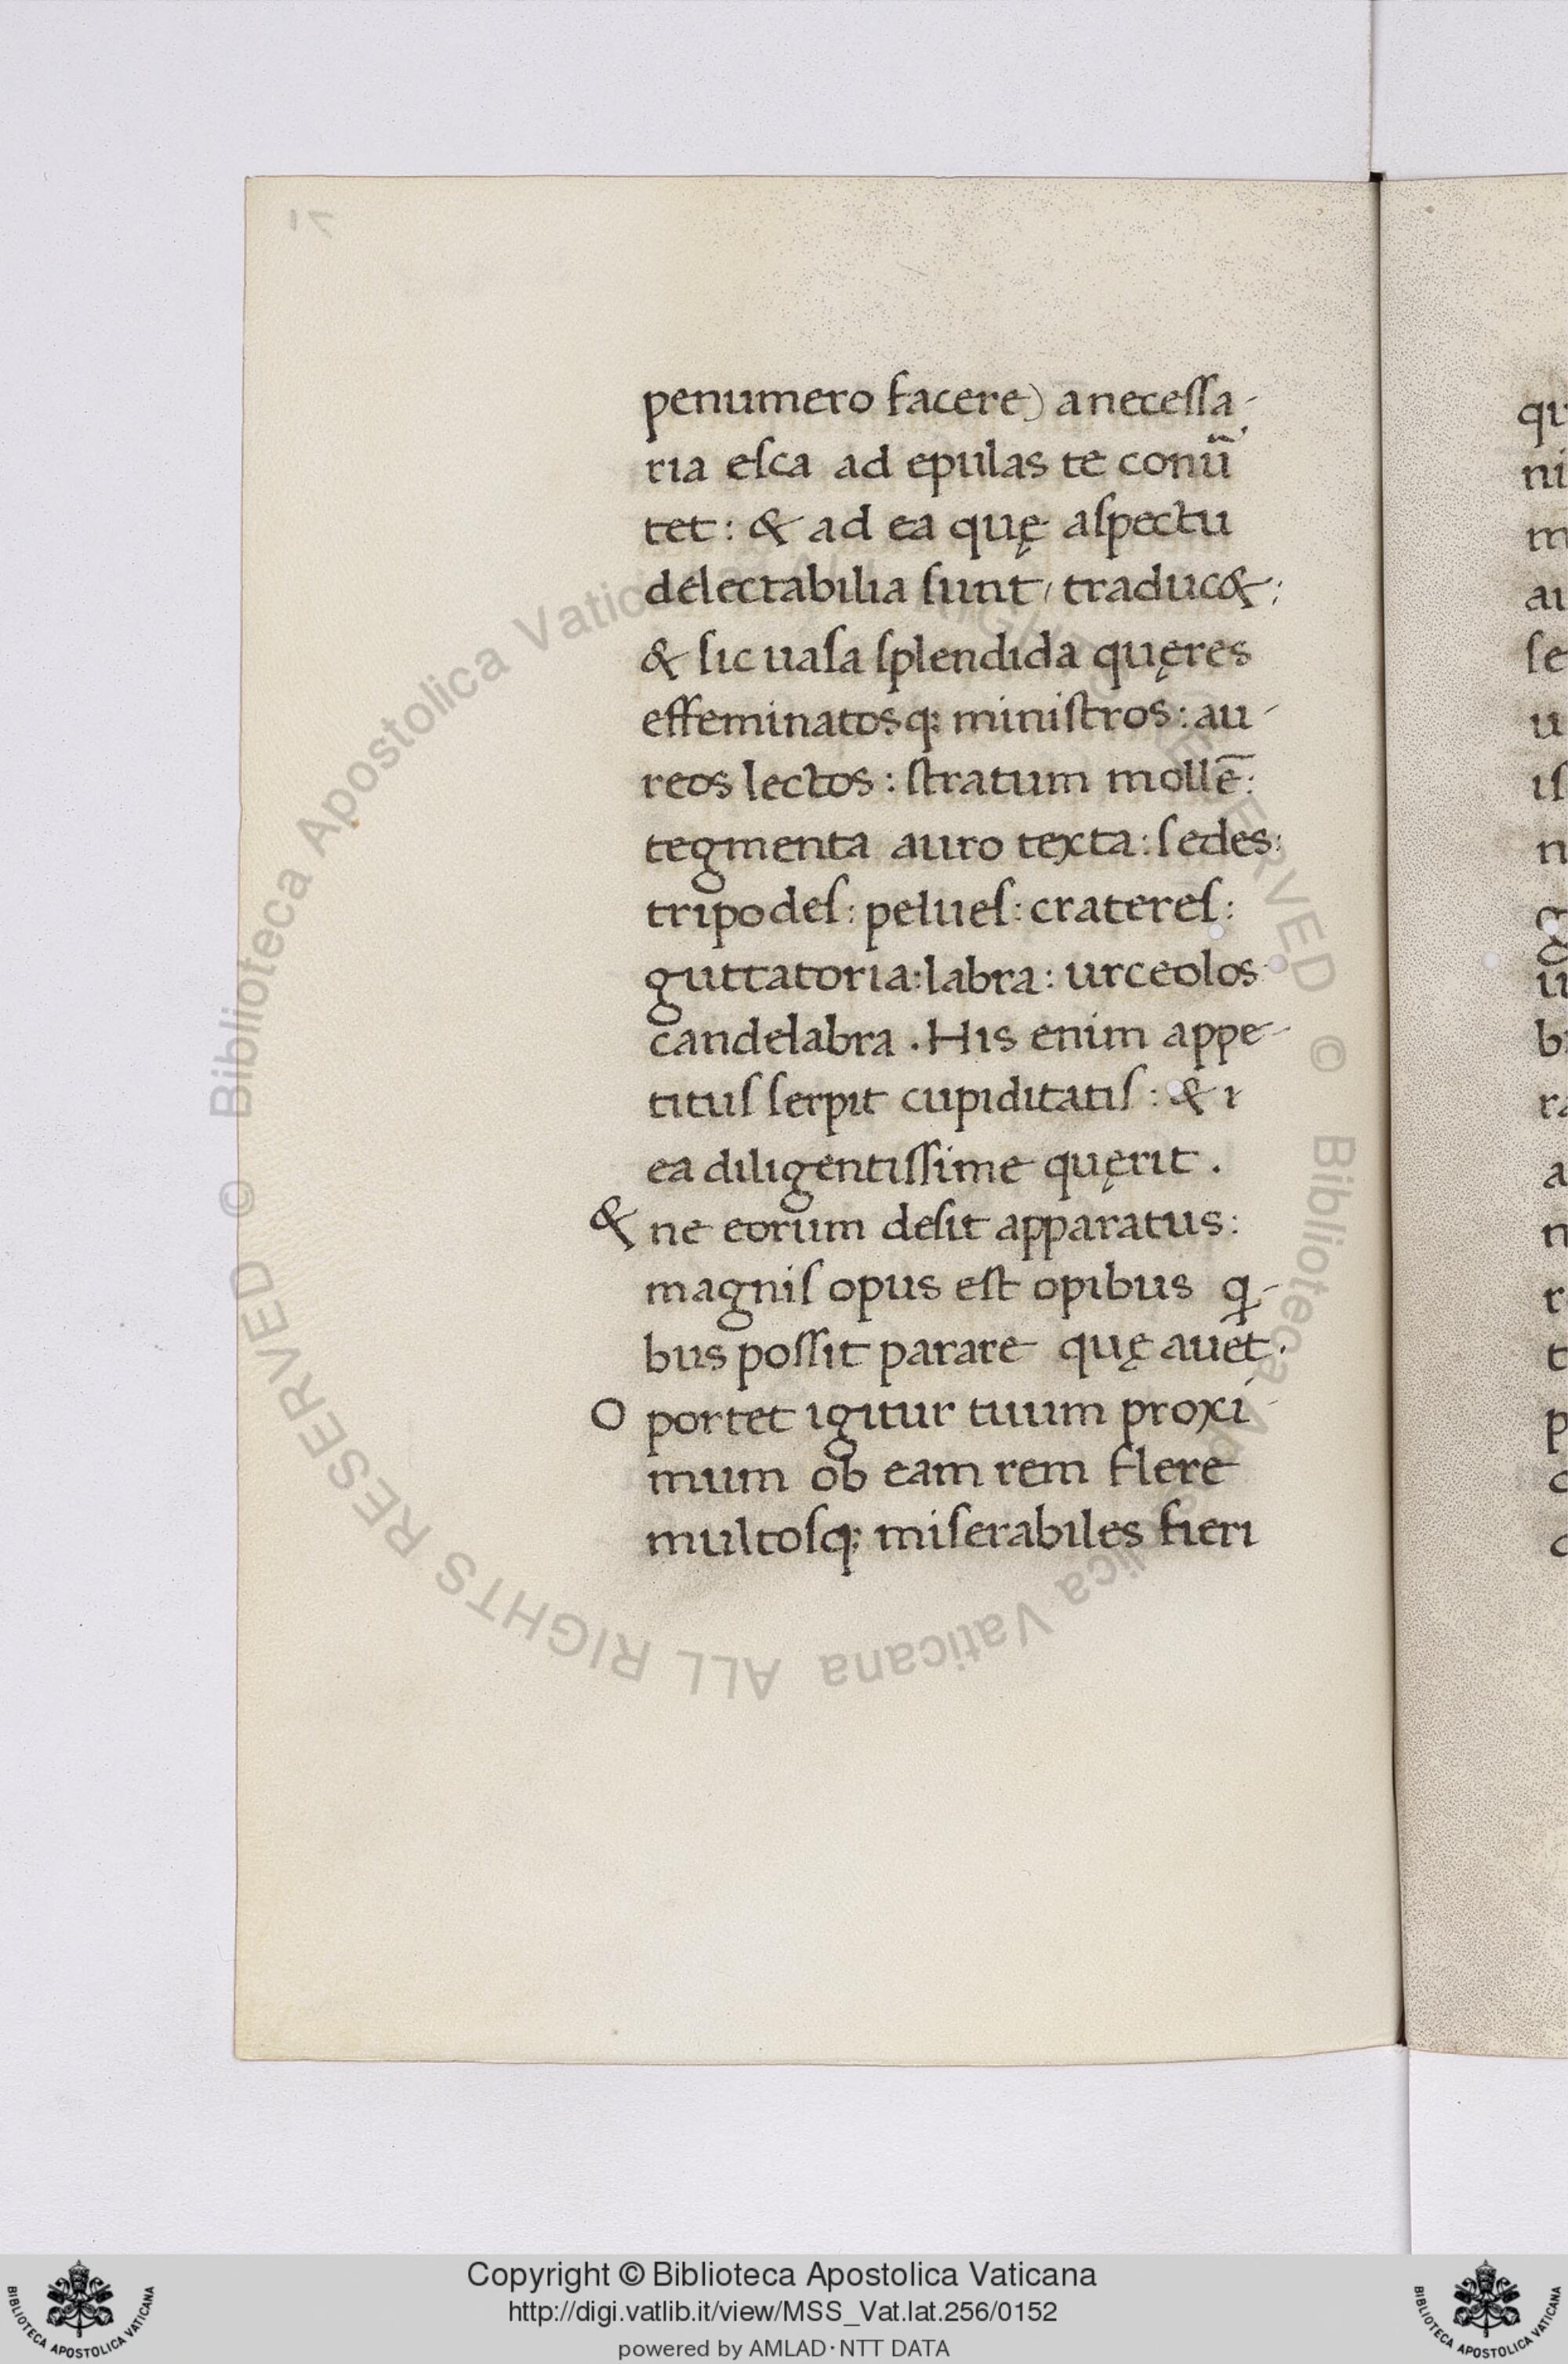 penumero facere) a necessa-
ria esca ad epulas te conũ
tet: & ad ea quę aspectu
delectabilia sunt, traduc&;
& sic uasa splendida quęres
effeminatosq; ministros: au-
reos lectos: stratum mollē:
tegmenta auro texta: sedes:
tripodes: pelues: crateres:
guttatoria: labra: urceolos
candelabra. His enim appe-
titus serpit cupiditatis: & ı
ea diligentissime quęrit.
& ne eorum desit apparatus:
magnis opus est opibus q-
bus possit parare quę auet.
O portet igitur tuum proxi-
mum ob eam rem flere
multosq; miserabiles fieri
qu
ni
m
au
se
u
is
n
g
u
b
ra
a
n
r
t
p
c
c
© Biblioteca Apostolica Vaticana ALL RIGHTS RESERVED © Biblioteca Apostolica Vaticana ALL RIGHTS RESERVED
Copyright © Biblioteca Apostolica Vaticana
http://digi.vatlib.it/view/MSS_Vat.lat.256/0152
powered by AMLAD·NTT DATA
BIBLIOTECA APOSTOLICA VATICANA
BIBLIOTECA APOSTOLICA VATICANA